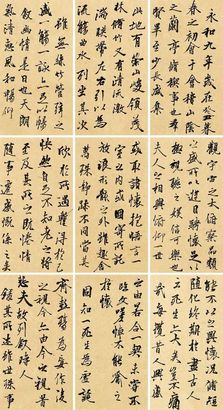 永和九年歲在癸丑暮
春之初會于會稽山陰
之蘭亭脩稧事也
此地有崇山峻領茂
林脩竹又有清流激
湍暎帶左右引以為
流觴曲水列坐其次
雖無絲竹管弦之
盛一觴一詠亦足以暢
敘幽情是日也天朗
氣清惠風和暢仰
之盛所以遊目騁懷足以
極視聽之娛信可樂也
夫人之相與俯仰
或取諸懷抱悟言一
室之內或因寄所託
放浪形骸之外雖趣舍
萬殊靜躁不同當其
欣於所遇暫得於己
快然自足不知老之將
至及其所之既惓情
隨事遷感慨係之矣
能不以之興懷況脩短
隨化終期於盡古人
云死生亦大矣豈不痛
哉每攬昔人興感
之由若合一契未嘗不
臨文嗟悼不能喻之
於懷固知一死生為虛誕
齊彭殤為妄作後
之視今亦由今之視昔
悲夫故列敘時人
錄其所述雖世殊事